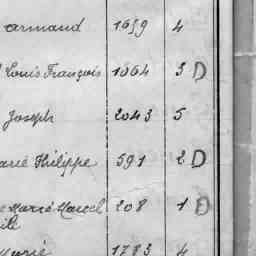 Armand 1659 4
Louis François 1064 3 D
Joseph 2043 5
Marie Philippe 591 2 D
Marie Marcel 208 1 D
Marie 1783 4